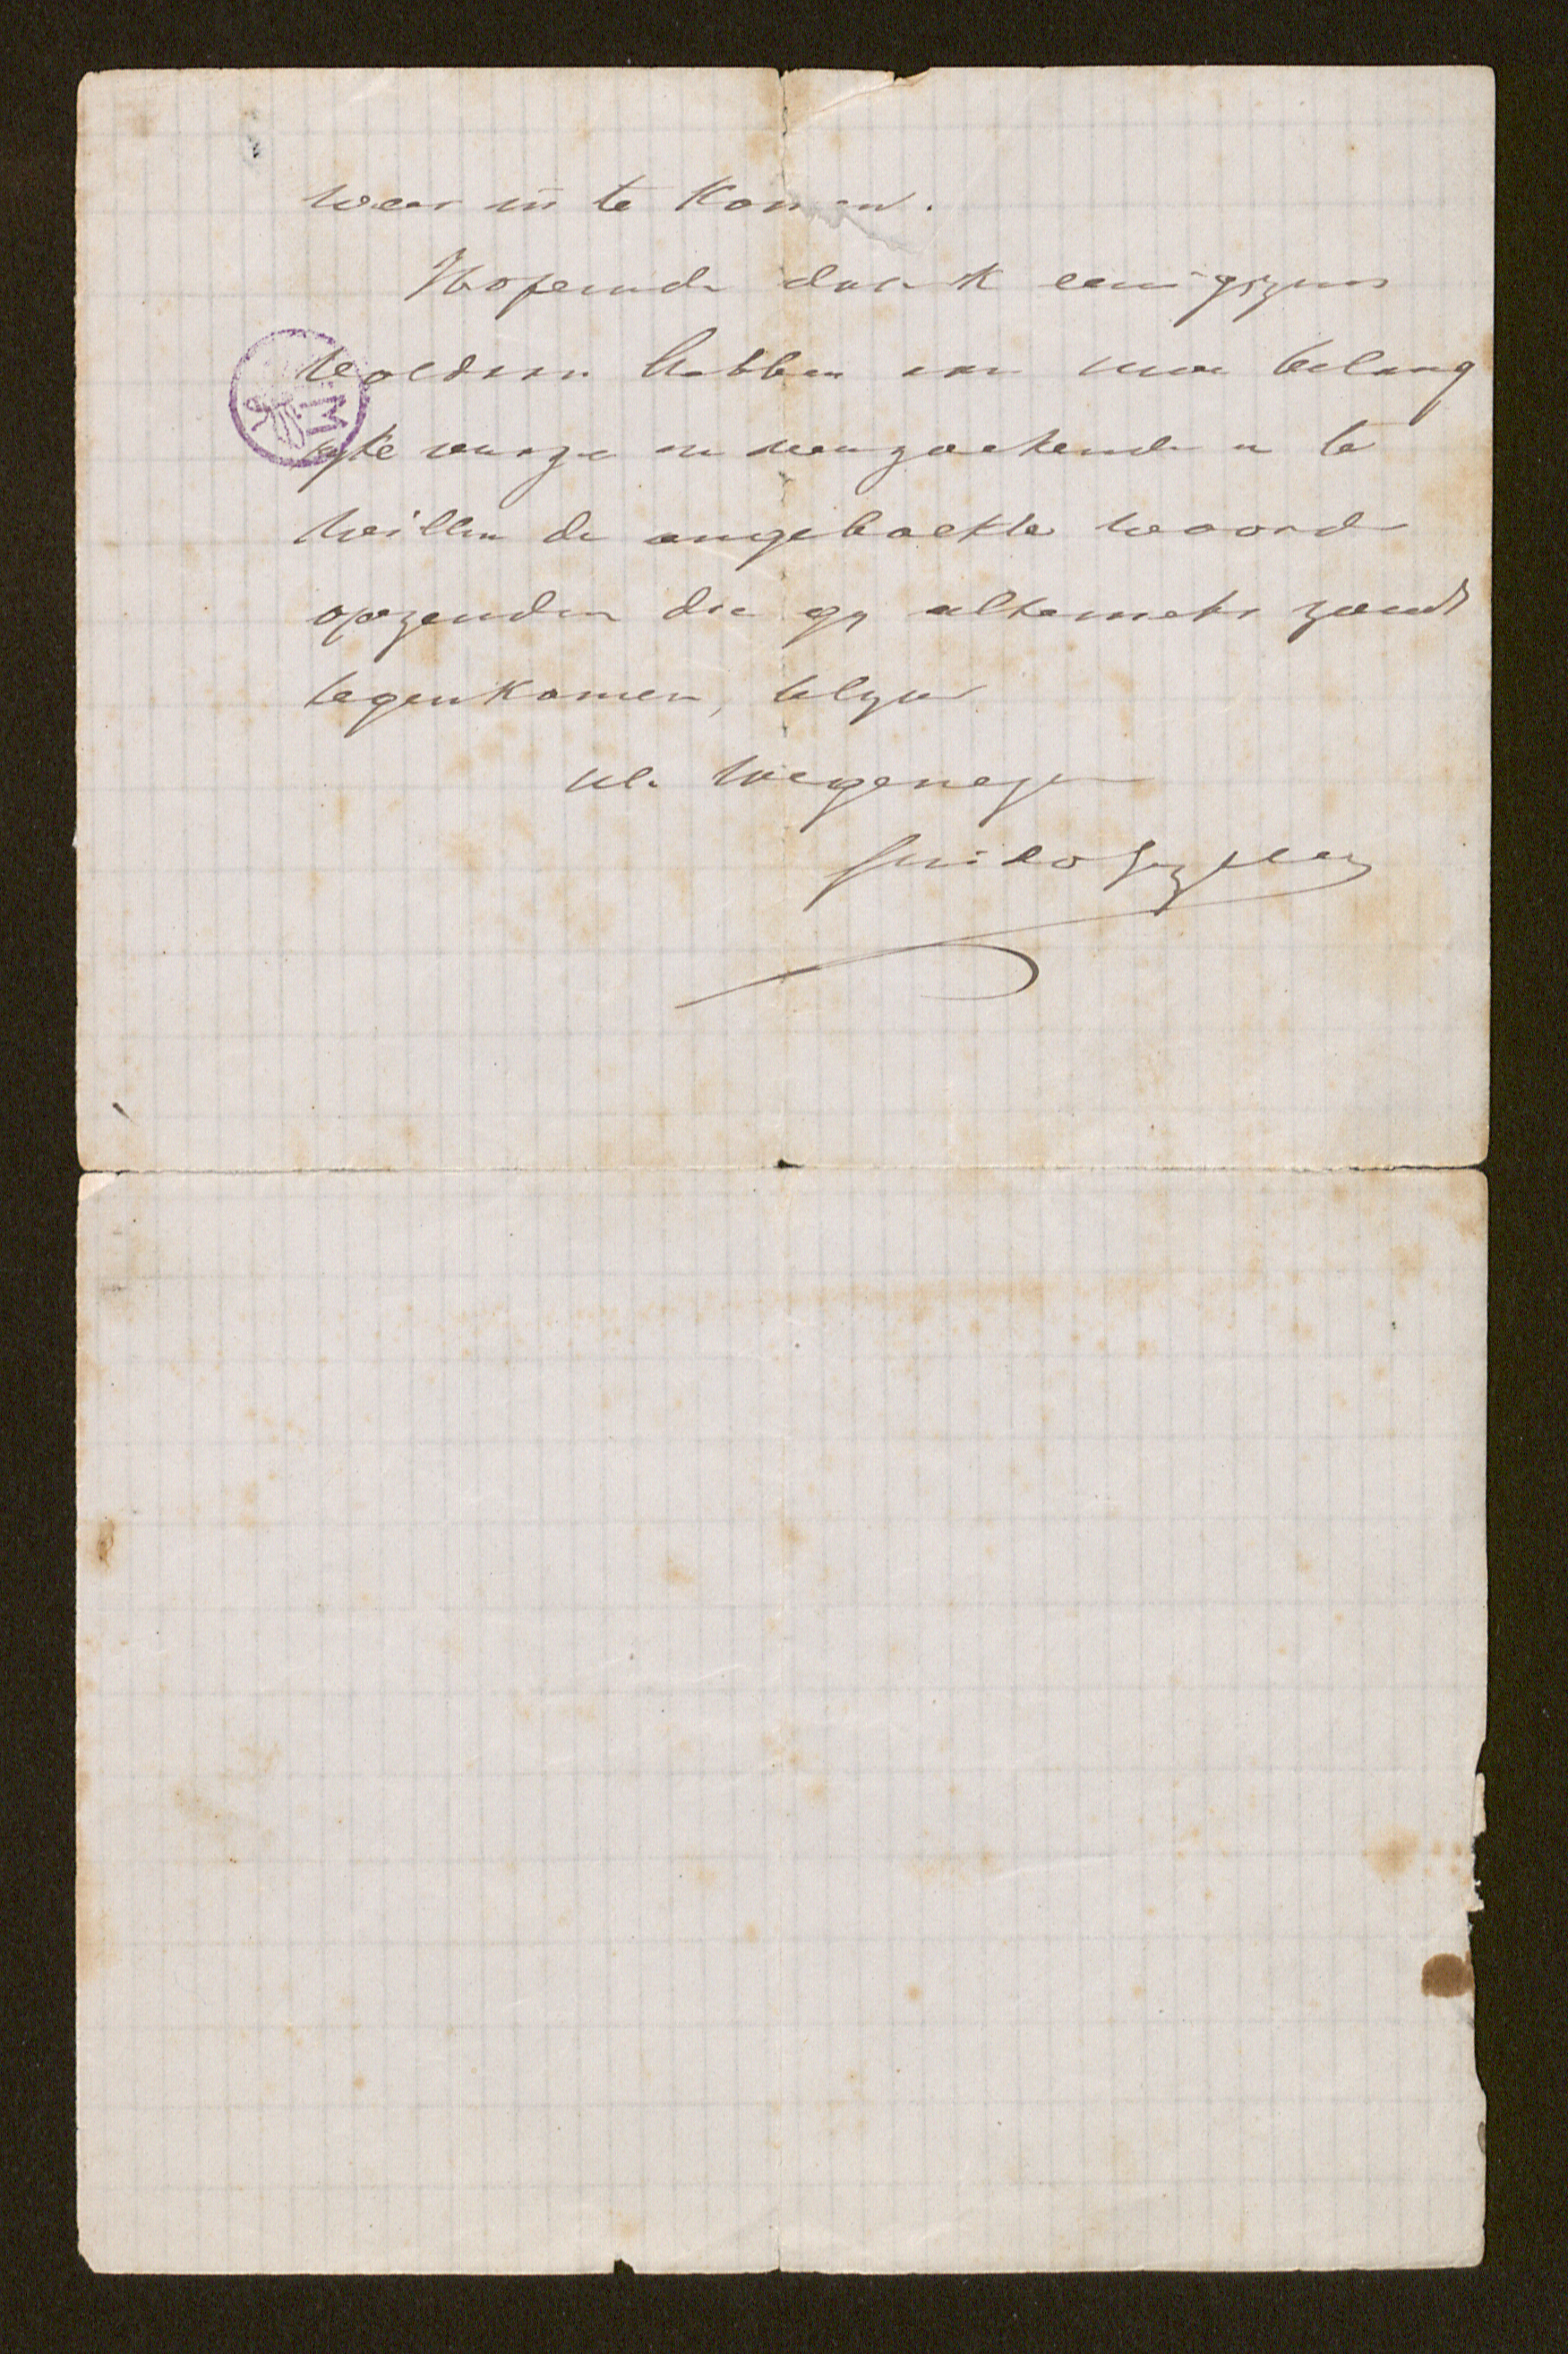 weer in te komen.
Hopende dat ik eenigszins
voldaan hebben aan uwe belang
ryke vrage en verzoekende u te
willen de ongeboekte woorden
opzenden die gy altemets zoudt
tegenkomen, blyve
Ul. toegenegen
Guido Gezelle